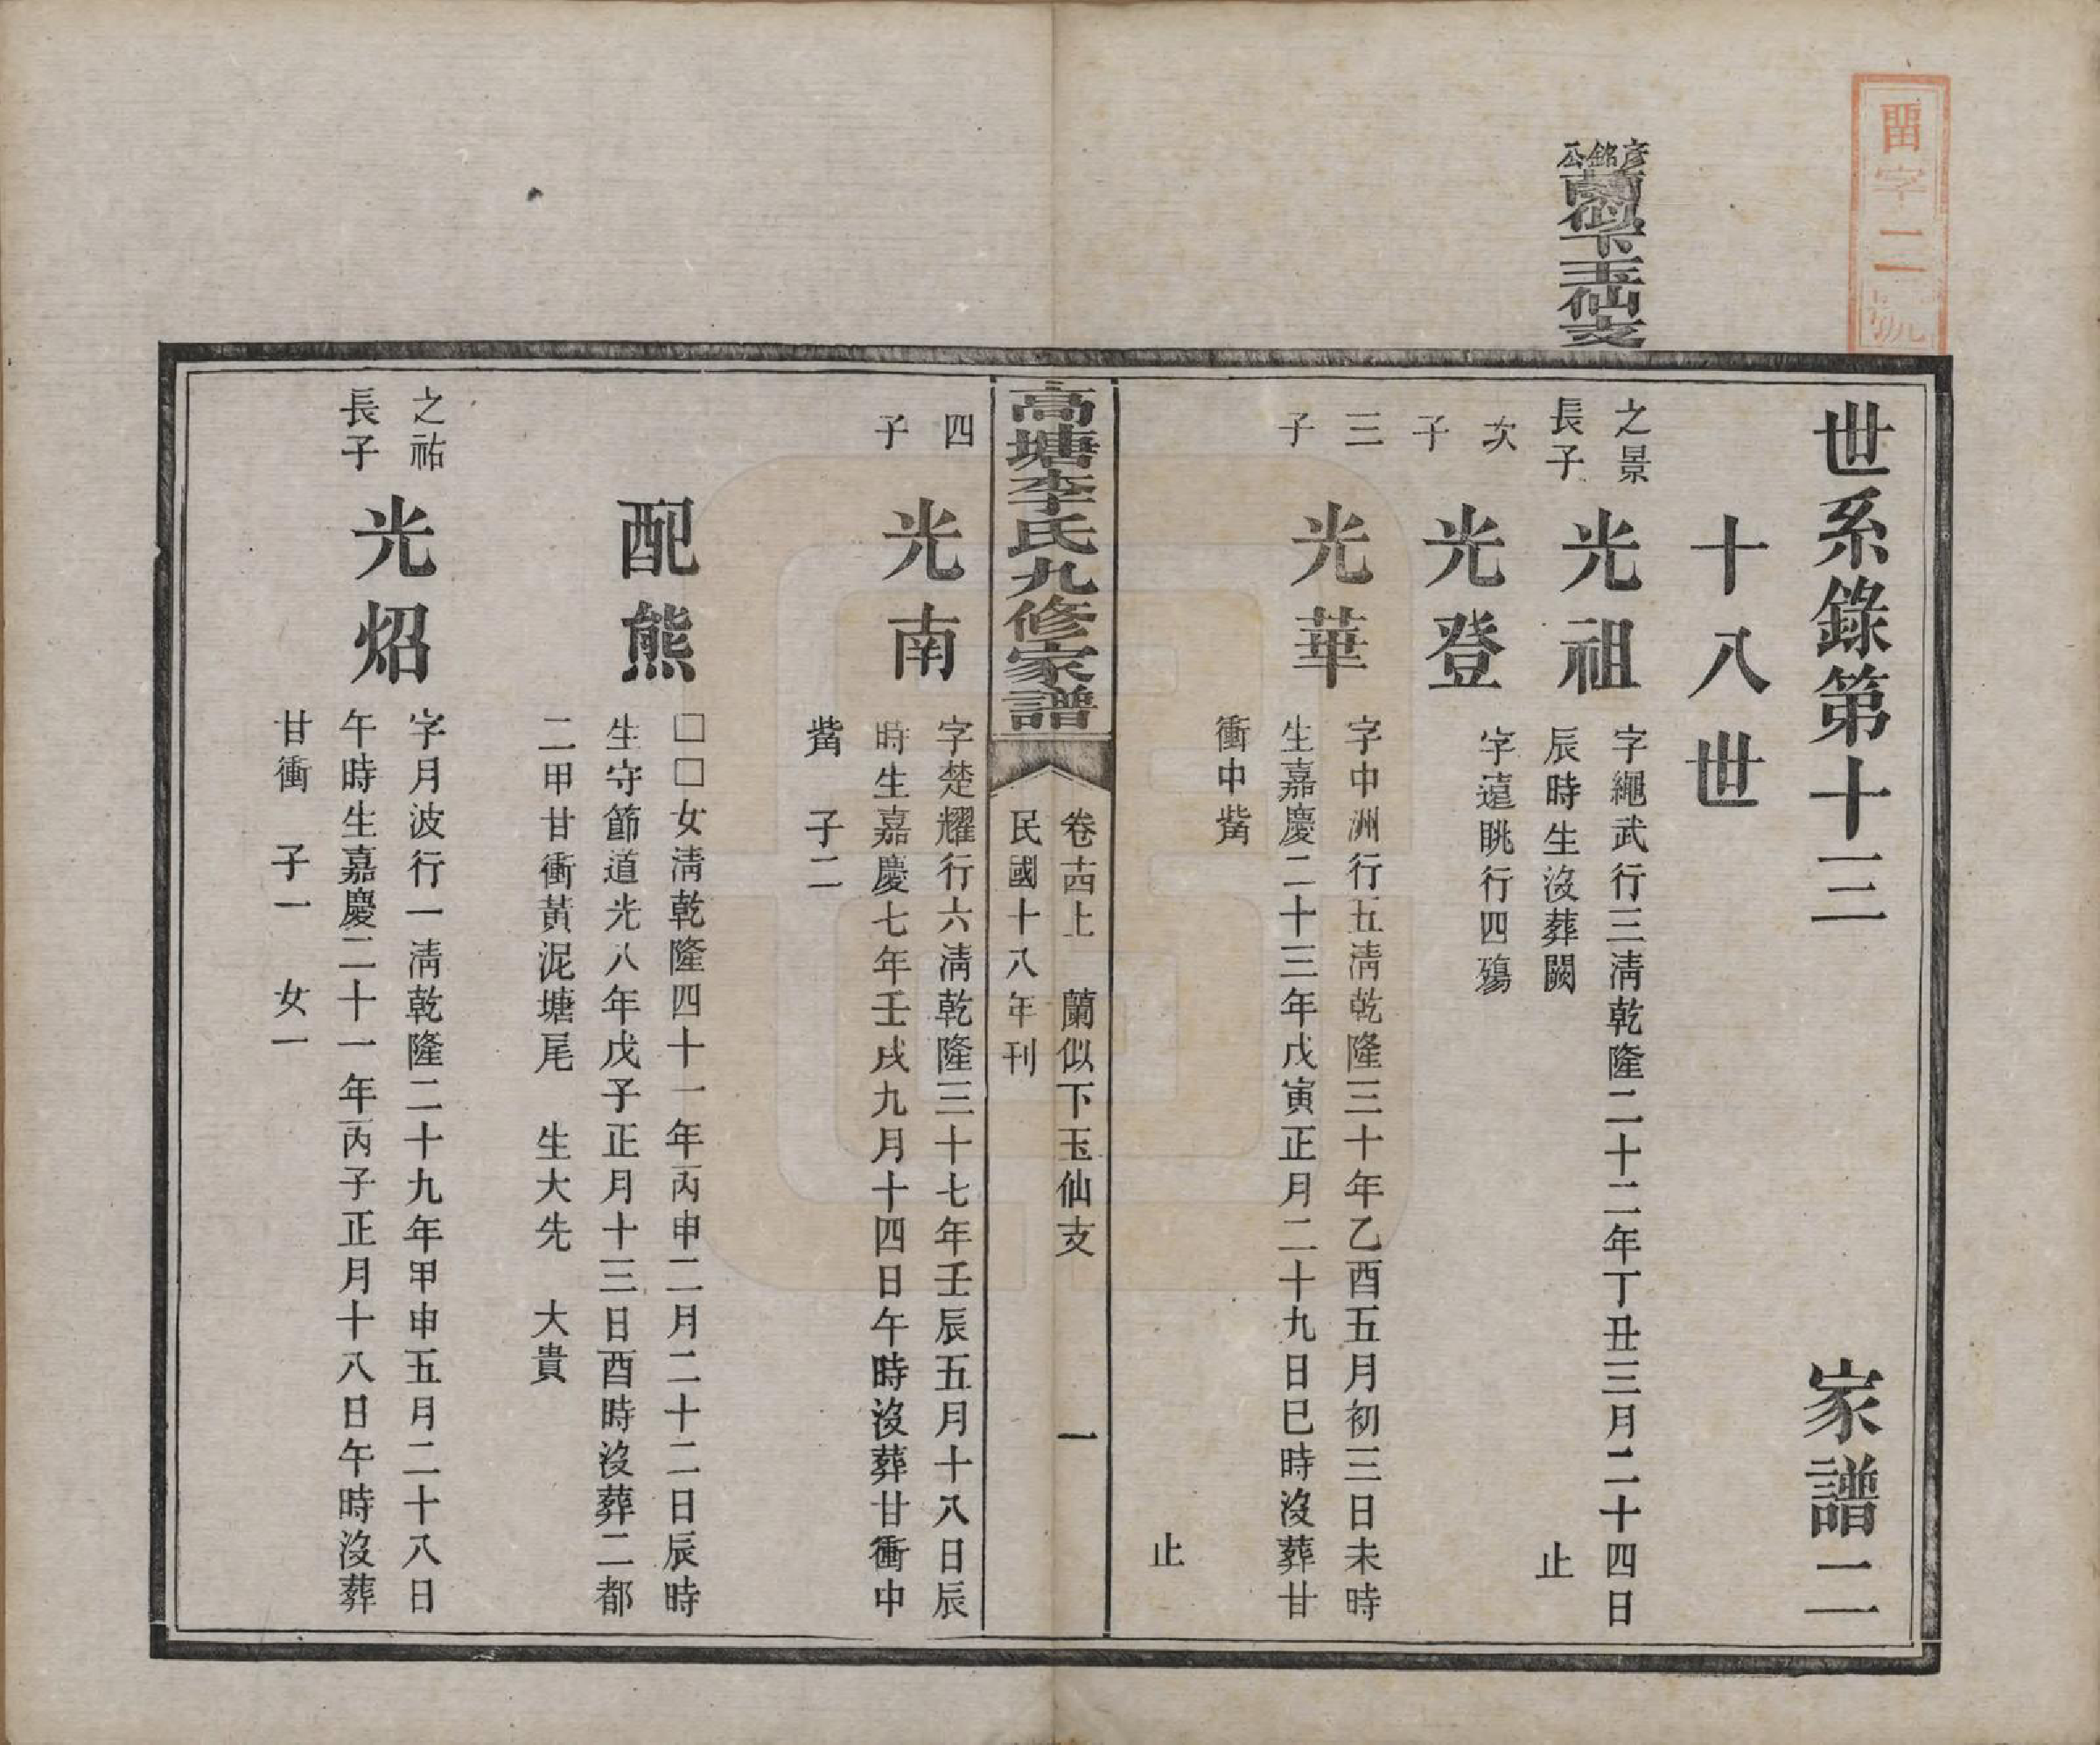 畱字二號
彥銘公蘭似下玉仙支
世系錄第十三 家譜二
十八世
之景長子 光祖 字繩武行三淸乾隆二十二年丁丑三月二十四日
辰時生沒葬闕 止
次子 光登 字遠眺行四殤
三子 光華 字中洲行五淸乾隆三十年乙酉五月初三日未時
生嘉慶二十三年戊寅正月二十九日巳時沒葬甘
衝中嵛
止
卷十四上 蘭似下玉仙支 一
高塘李氏九修家譜
民國十八年刊
四子 光南 字楚耀行六淸乾隆三十七年壬辰五月十八日辰
時生嘉慶七年壬戌九月十四日午時沒葬甘衝中
嵛 子二
配熊 □□女淸乾隆四十一年丙申二月二十二日辰時
生守節道光八年戊子正月十三日酉時沒葬二都
二甲甘衝黃泥塘尾 生大先 大貴
之祐長子 光炤 字月波行一淸乾隆二十九年甲申五月二十八日
午時生嘉慶二十一年丙子正月十八日午時沒葬
甘衝 子一 女一